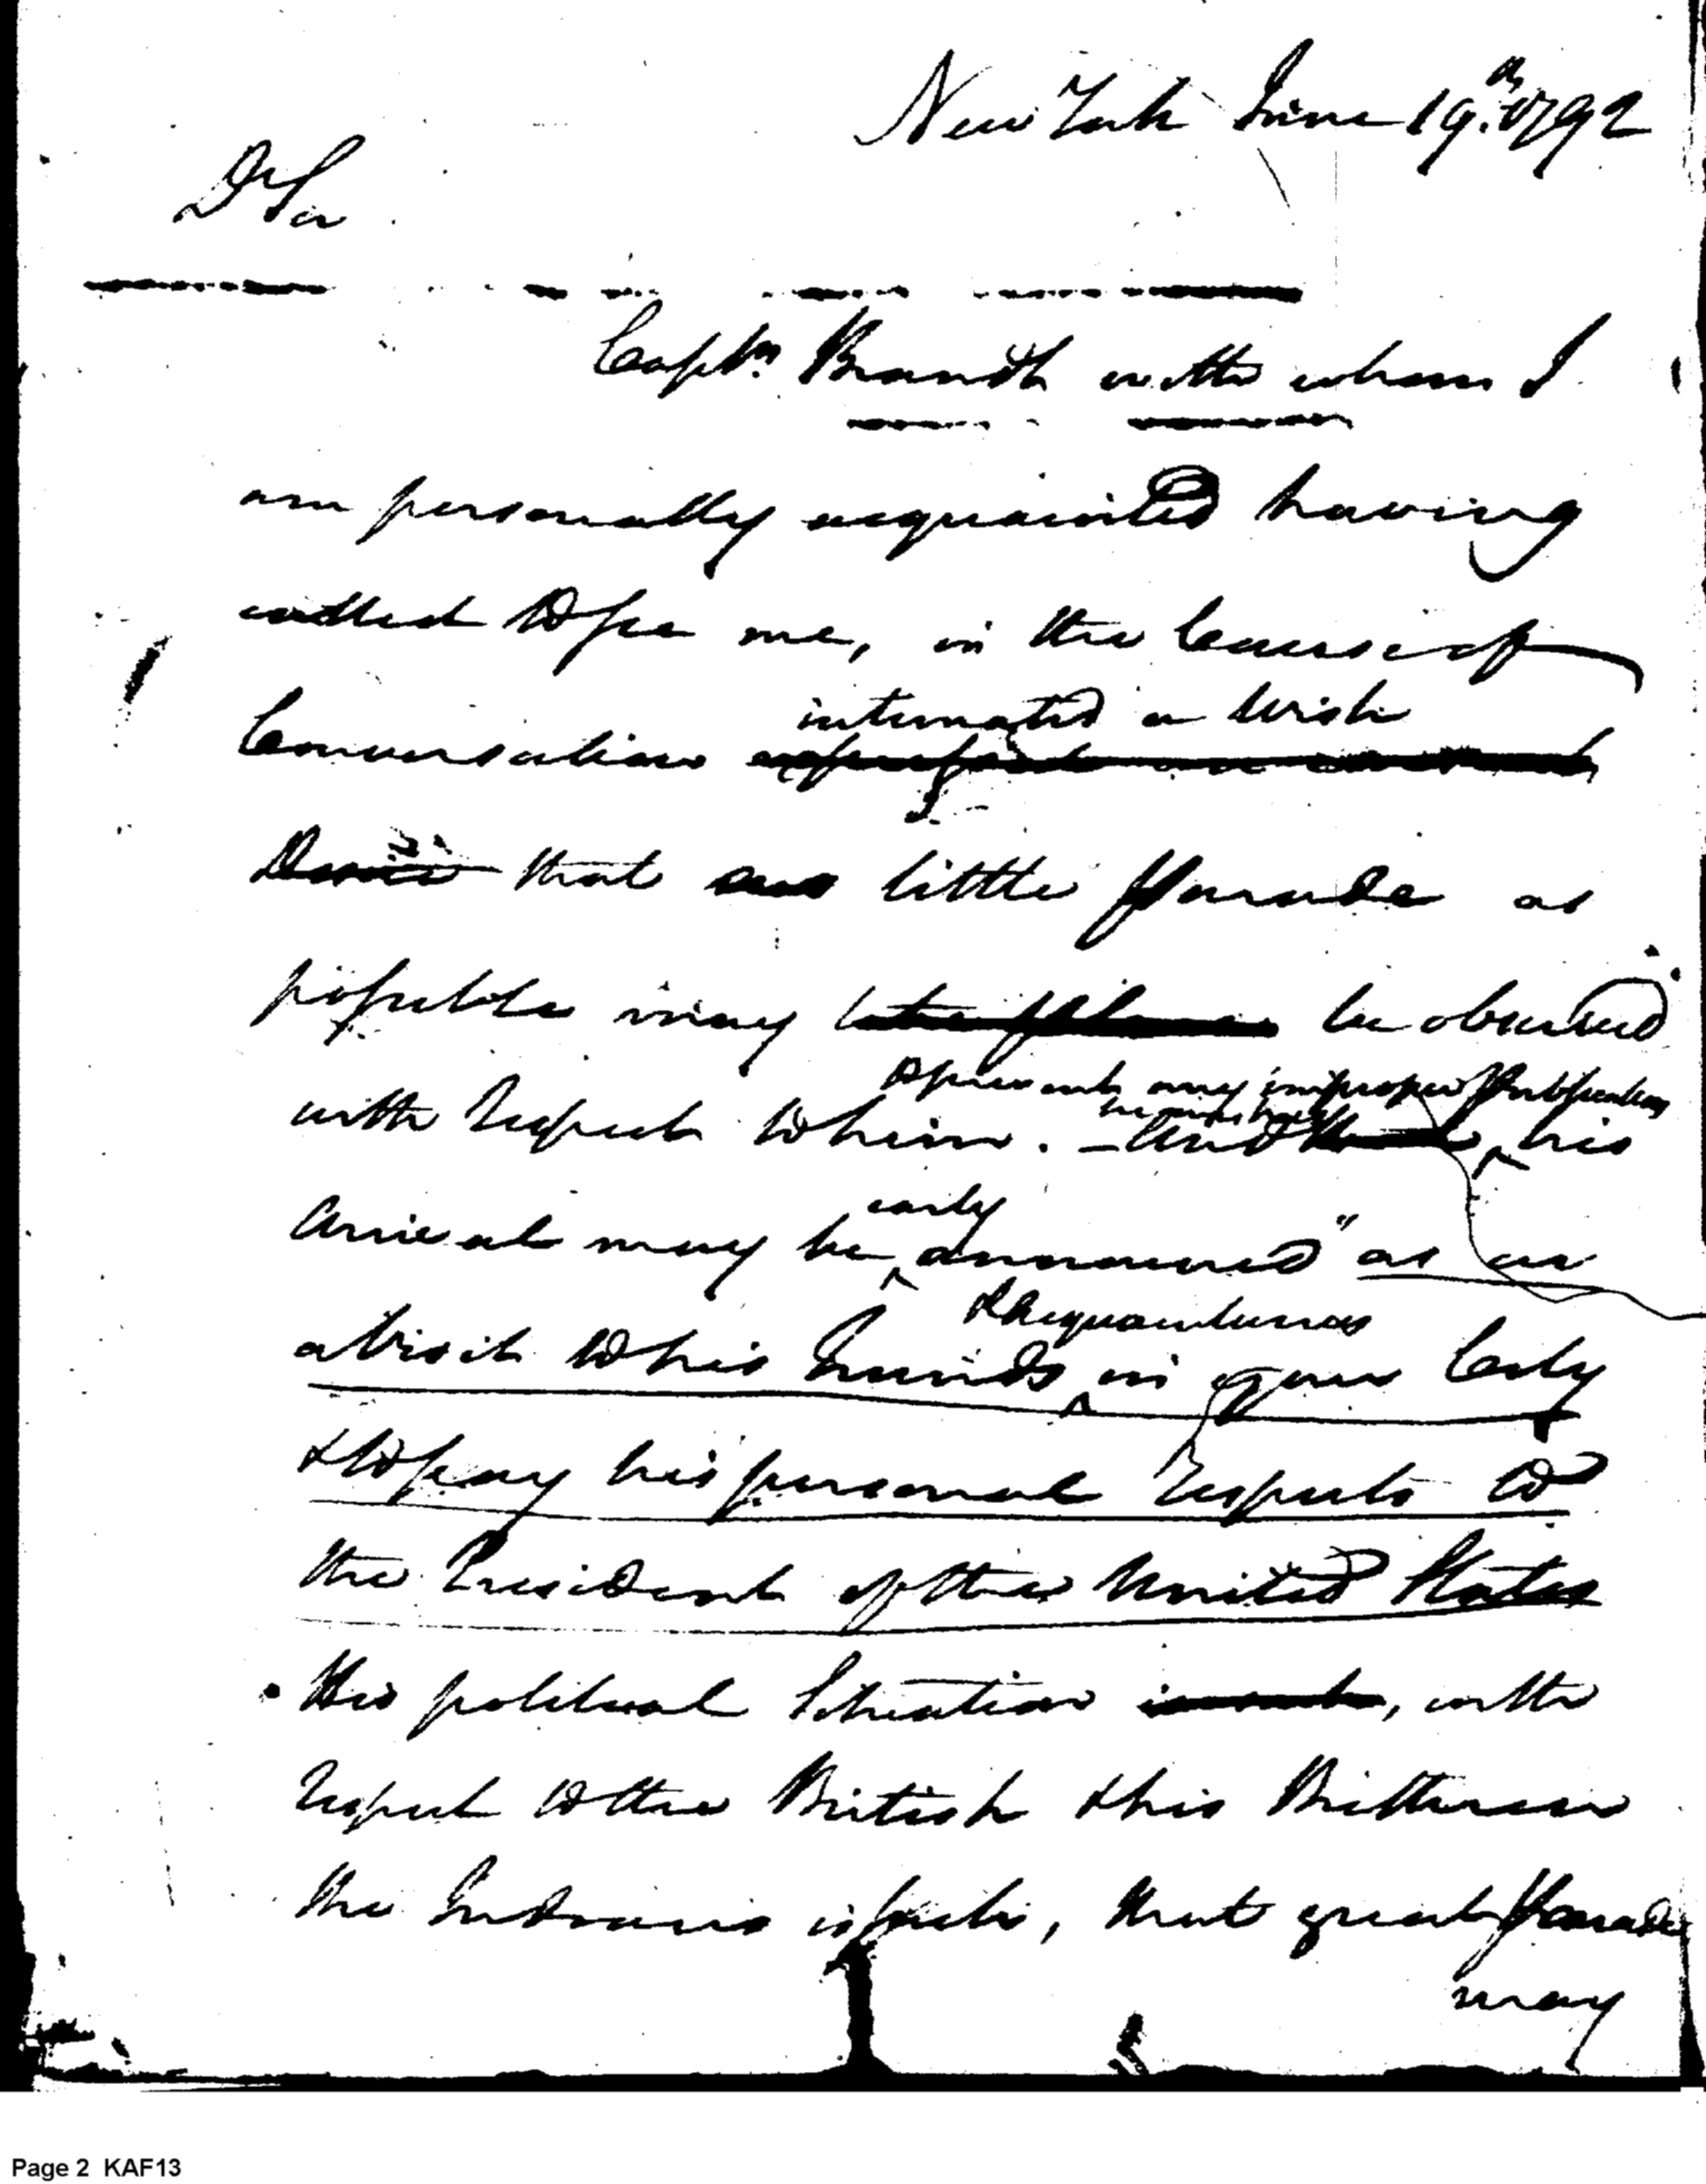 New York June 19th 1792
D Sir
Captn. Brandt with whom I
am personally acquainted having
called to see me, in the Course of
intimated a Wish
Conversation expressed an earnest
Desire that as little Parade as
possible may be observed
to prevent any improper Publication
with respect to him. – his
early
Arrival may be announced "as on
& Acquaintances
a Visit to his Friends in your City
& to pay his personal respects to
the President of the United States
His political Situation, with
respect to the British & his Bretheren
the Indians is such, that great Parade
may
Page 2 KAF13